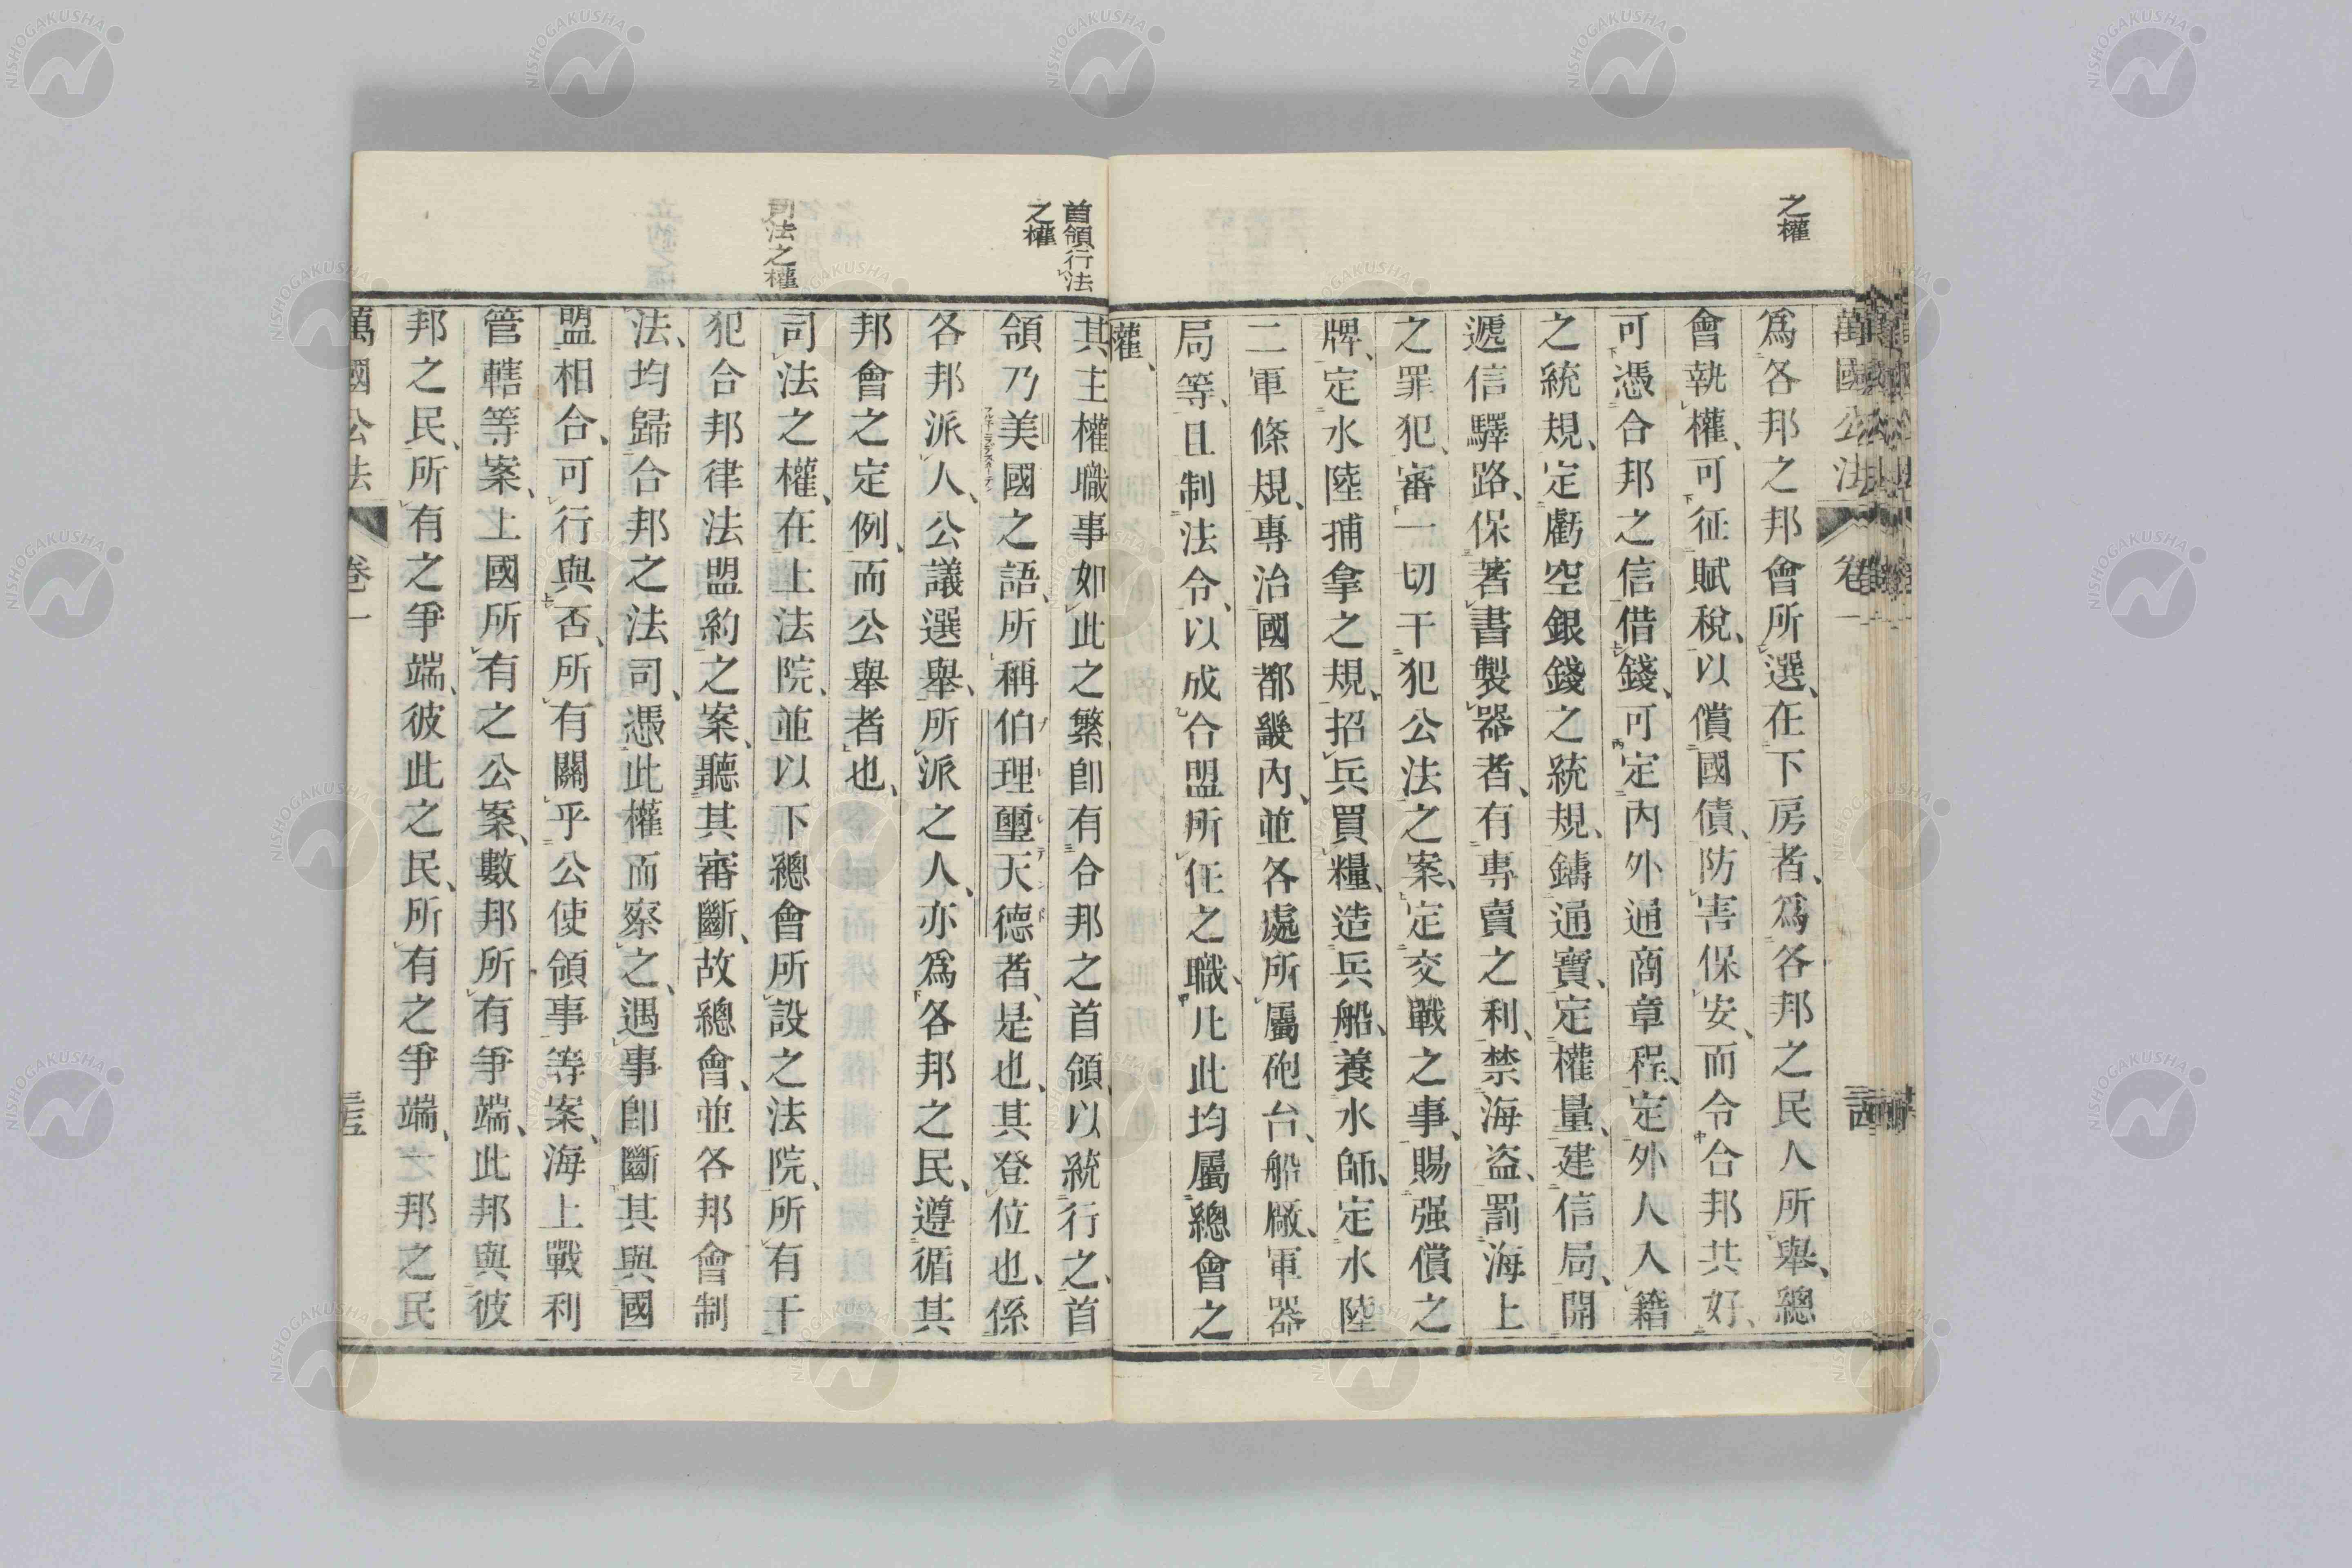 之權
萬國公法 卷一
爲各邦之邦會所選、在下房者、爲各邦之民人所舉、總
會執權、可征賦稅、以償國債、防害保安、而令合邦共好、
可憑合邦之信借錢、可定內外通商章程、定外人入籍
之統規、定虧空銀錢之統規、鑄通寶、定權量、建信局、開
遞信驛路、保著書製器者、有專賣之利、禁海盜、罰海上
之罪犯、審一切干犯公法之案、定交戰之事、賜强償之
牌、定水陸捕拿之規、招兵買糧、造兵船、養水師、定水陸
二軍條規、專治國都畿內、並各處所屬砲台、船廠、軍器
局等、且制法令、以成合盟所任之職、凡此均屬總會之
權、
首領行法
之權
司法之權
其主權職事如此之繁、卽有合邦之首領、以統行之、首
領乃美國之語、所稱伯理璽天德者、是也、其登位也、係
各邦派人、公議選舉、所派之人、亦爲各邦之民、遵循其
邦會之定例、而公舉者也、
司法之權、在上法院、並以下總會所設之法院、所有干
犯合邦律法盟約之案、聽其審斷、故總會、並各邦會制
法、均歸合邦之法司、憑此權而察之、遇事卽斷其與國
盟相合、可行與否、所有關乎公使領事等案、海上戰利
管轄等案、上國所有之公案、數邦所有爭端、此邦與彼
邦之民、所有之爭端、彼此之民、所有之爭端、一邦之民
萬國公法 卷一
NISHOGAKUSHA